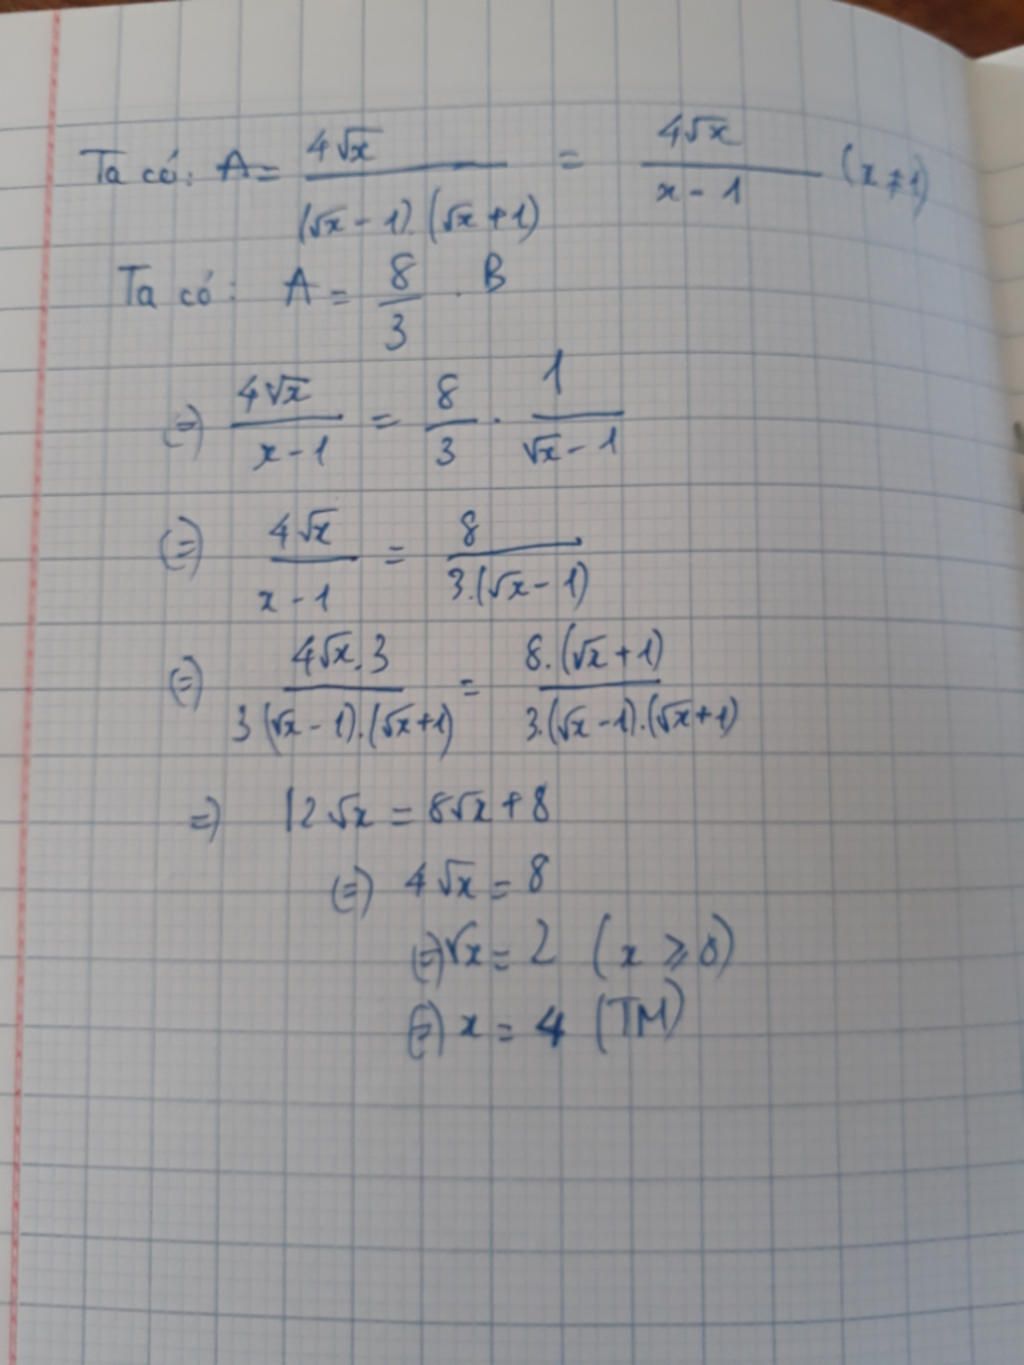 Ta có: A = 4√x / (√x - 1).(√x + 1) = 4√x / x - 1 (x ≠ 1)
Ta có: A = 8/3 . B
(=) 4√x / x - 1 = 8/3 . 1 / √x - 1
(=) 4√x / x - 1 = 8 / 3.(√x - 1)
(=) 4√x.3 / 3(√x - 1).(√x + 1) = 8.(√x + 1) / 3.(√x - 1).(√x + 1)
=) 12√x = 8√x + 8
(=) 4√x = 8
(=) √x = 2 (x ≥ 0)
(=) x = 4 (TM)